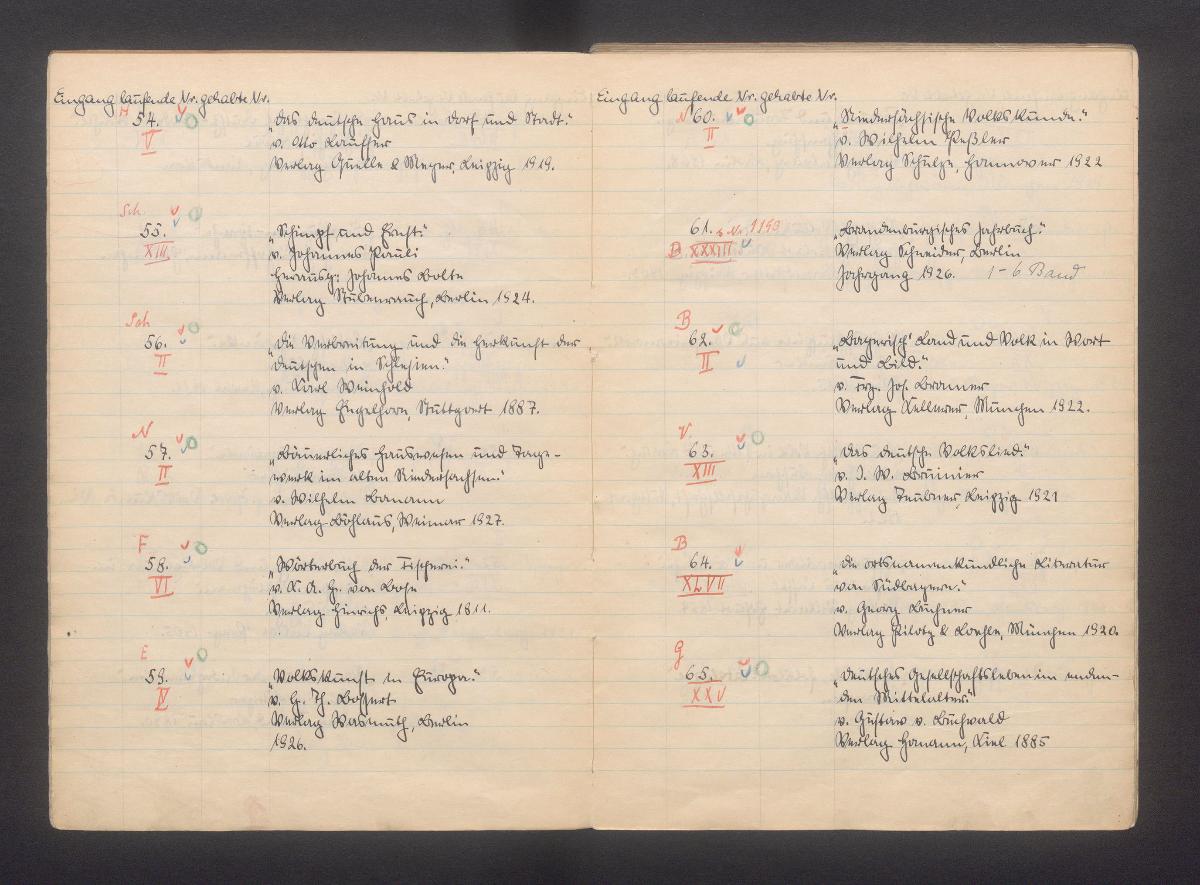 Eingang laufende Nr. gehabte Nr.
H
54. „Das deutsche Haus in Dorf und Stadt."
V v. Otto Lauffer
Verlag Quelle & Meyer, Leipzig 1919.
Sch.
55. „Schimpf und Ernst."
XIII v. Johannes Pauli
Herausg. Johannes Bolte
Verlag Stubenrauch, Berlin 1924.
Sch
56. „Die Verbreitung und die Herkunft der
II Deutschen in Schlesien."
v. Karl Weinhold
Verlag Engelhorn, Stuttgart 1887.
N
57. „Bäuerliches Hauswesen und Tage-
II werk im alten Niedersachsen."
v. Wilhelm Bomann
Verlag Böhlaus, Weimar 1927.
F
58. „Wörterbuch der Fischerei."
VI v. K. A. H. von Bose
Verlag Hinrichs, Leipzig 1811.
E
59. „Volkskunst in Europa."
IV v. H. Th. Bossert
Verlag Wasmuth, Berlin
1926.
Eingang laufende Nr. gehabte Nr.
N 60. „Niedersächsische Volkskunde."
II v. Wilhelm Peßler
Verlag Schulze, Hannover 1922
61. s. Nr. 1193 „Brandenburgisches Jahrbuch."
B XXXIII Verlag Schneider, Berlin
Jahrgang 1926. 1-6 Band
B
62. „Bayerisch' Land und Volk in Wort
II und Bild."
v. Frz. Jos. Bronner
Verlag Kellerer, München 1922.
V.
63. „Das deutsche Volkslied."
XIII v. J. W. Bruinier
Verlag Teubner, Leipzig 1921
B
64. „Die ortsnamenkundliche Literatur
XLVII von Südbayern."
v. Georg Buchner
Verlag Piloty & Loehle, München 1920.
G
65. „Deutsches Gesellschaftsleben im enden-
XXV den Mittelalter."
v. Gustav v. Buchwald
Verlag Homann, Kiel 1885